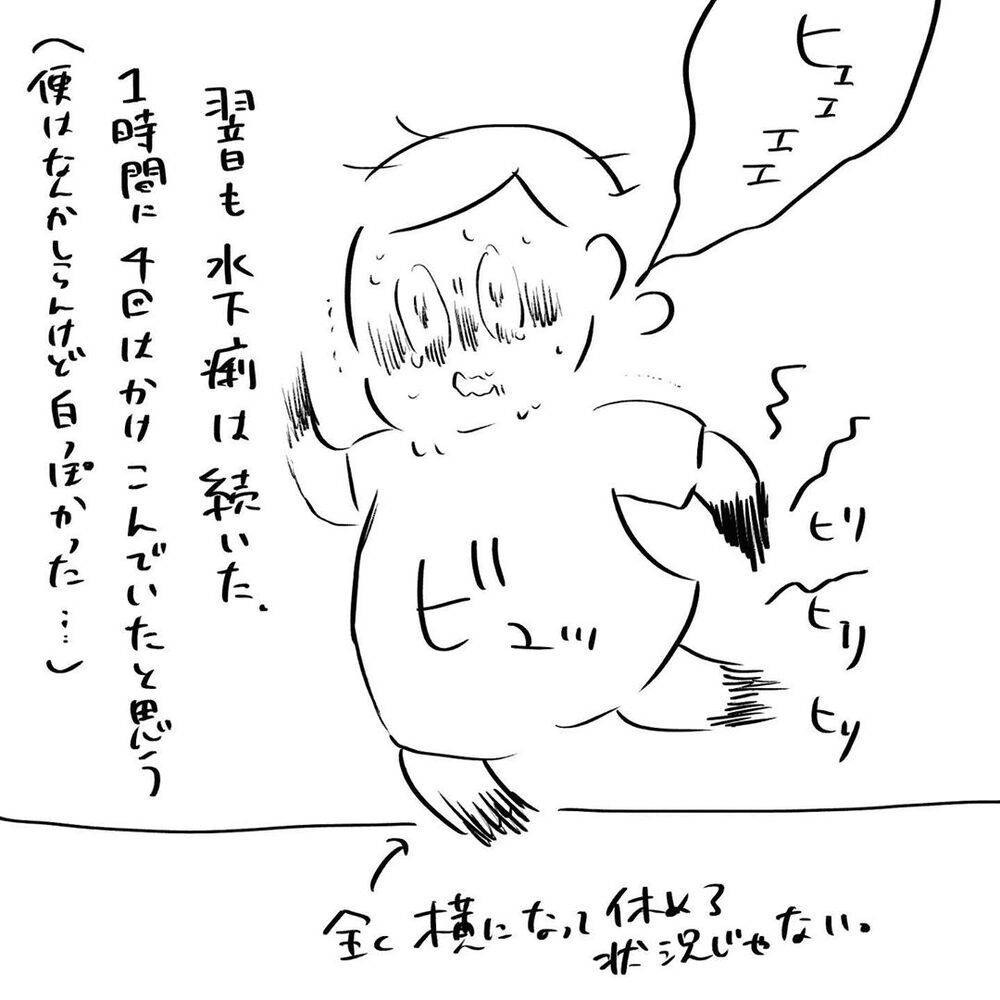 ヒェエエエ
翌日も水下痢は続いた.
1時間に4回はかけこんでいたと思う
(便はなんかしらんけど白っぽかった…)
ビュッ
ヒリ
ヒリ
ヒリ
全く横になって休める
状況じゃない。